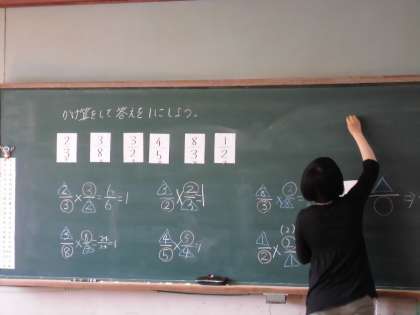 かけ算をして答えを1にしよう。
2/3 3/8 3/2 4/5 8/3 1/2
2/3 × 3/2 = 6/6 = 1 3/2 × 2/3 = 1 8/3 × 3/8 =
3/8 × 8/3 = 24/24 = 1 4/5 × 5/4 = 1 1/2 × (2) 2/1